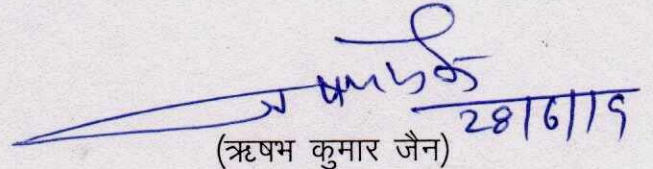 28/6/19
(ऋषभ कुमार जैन)